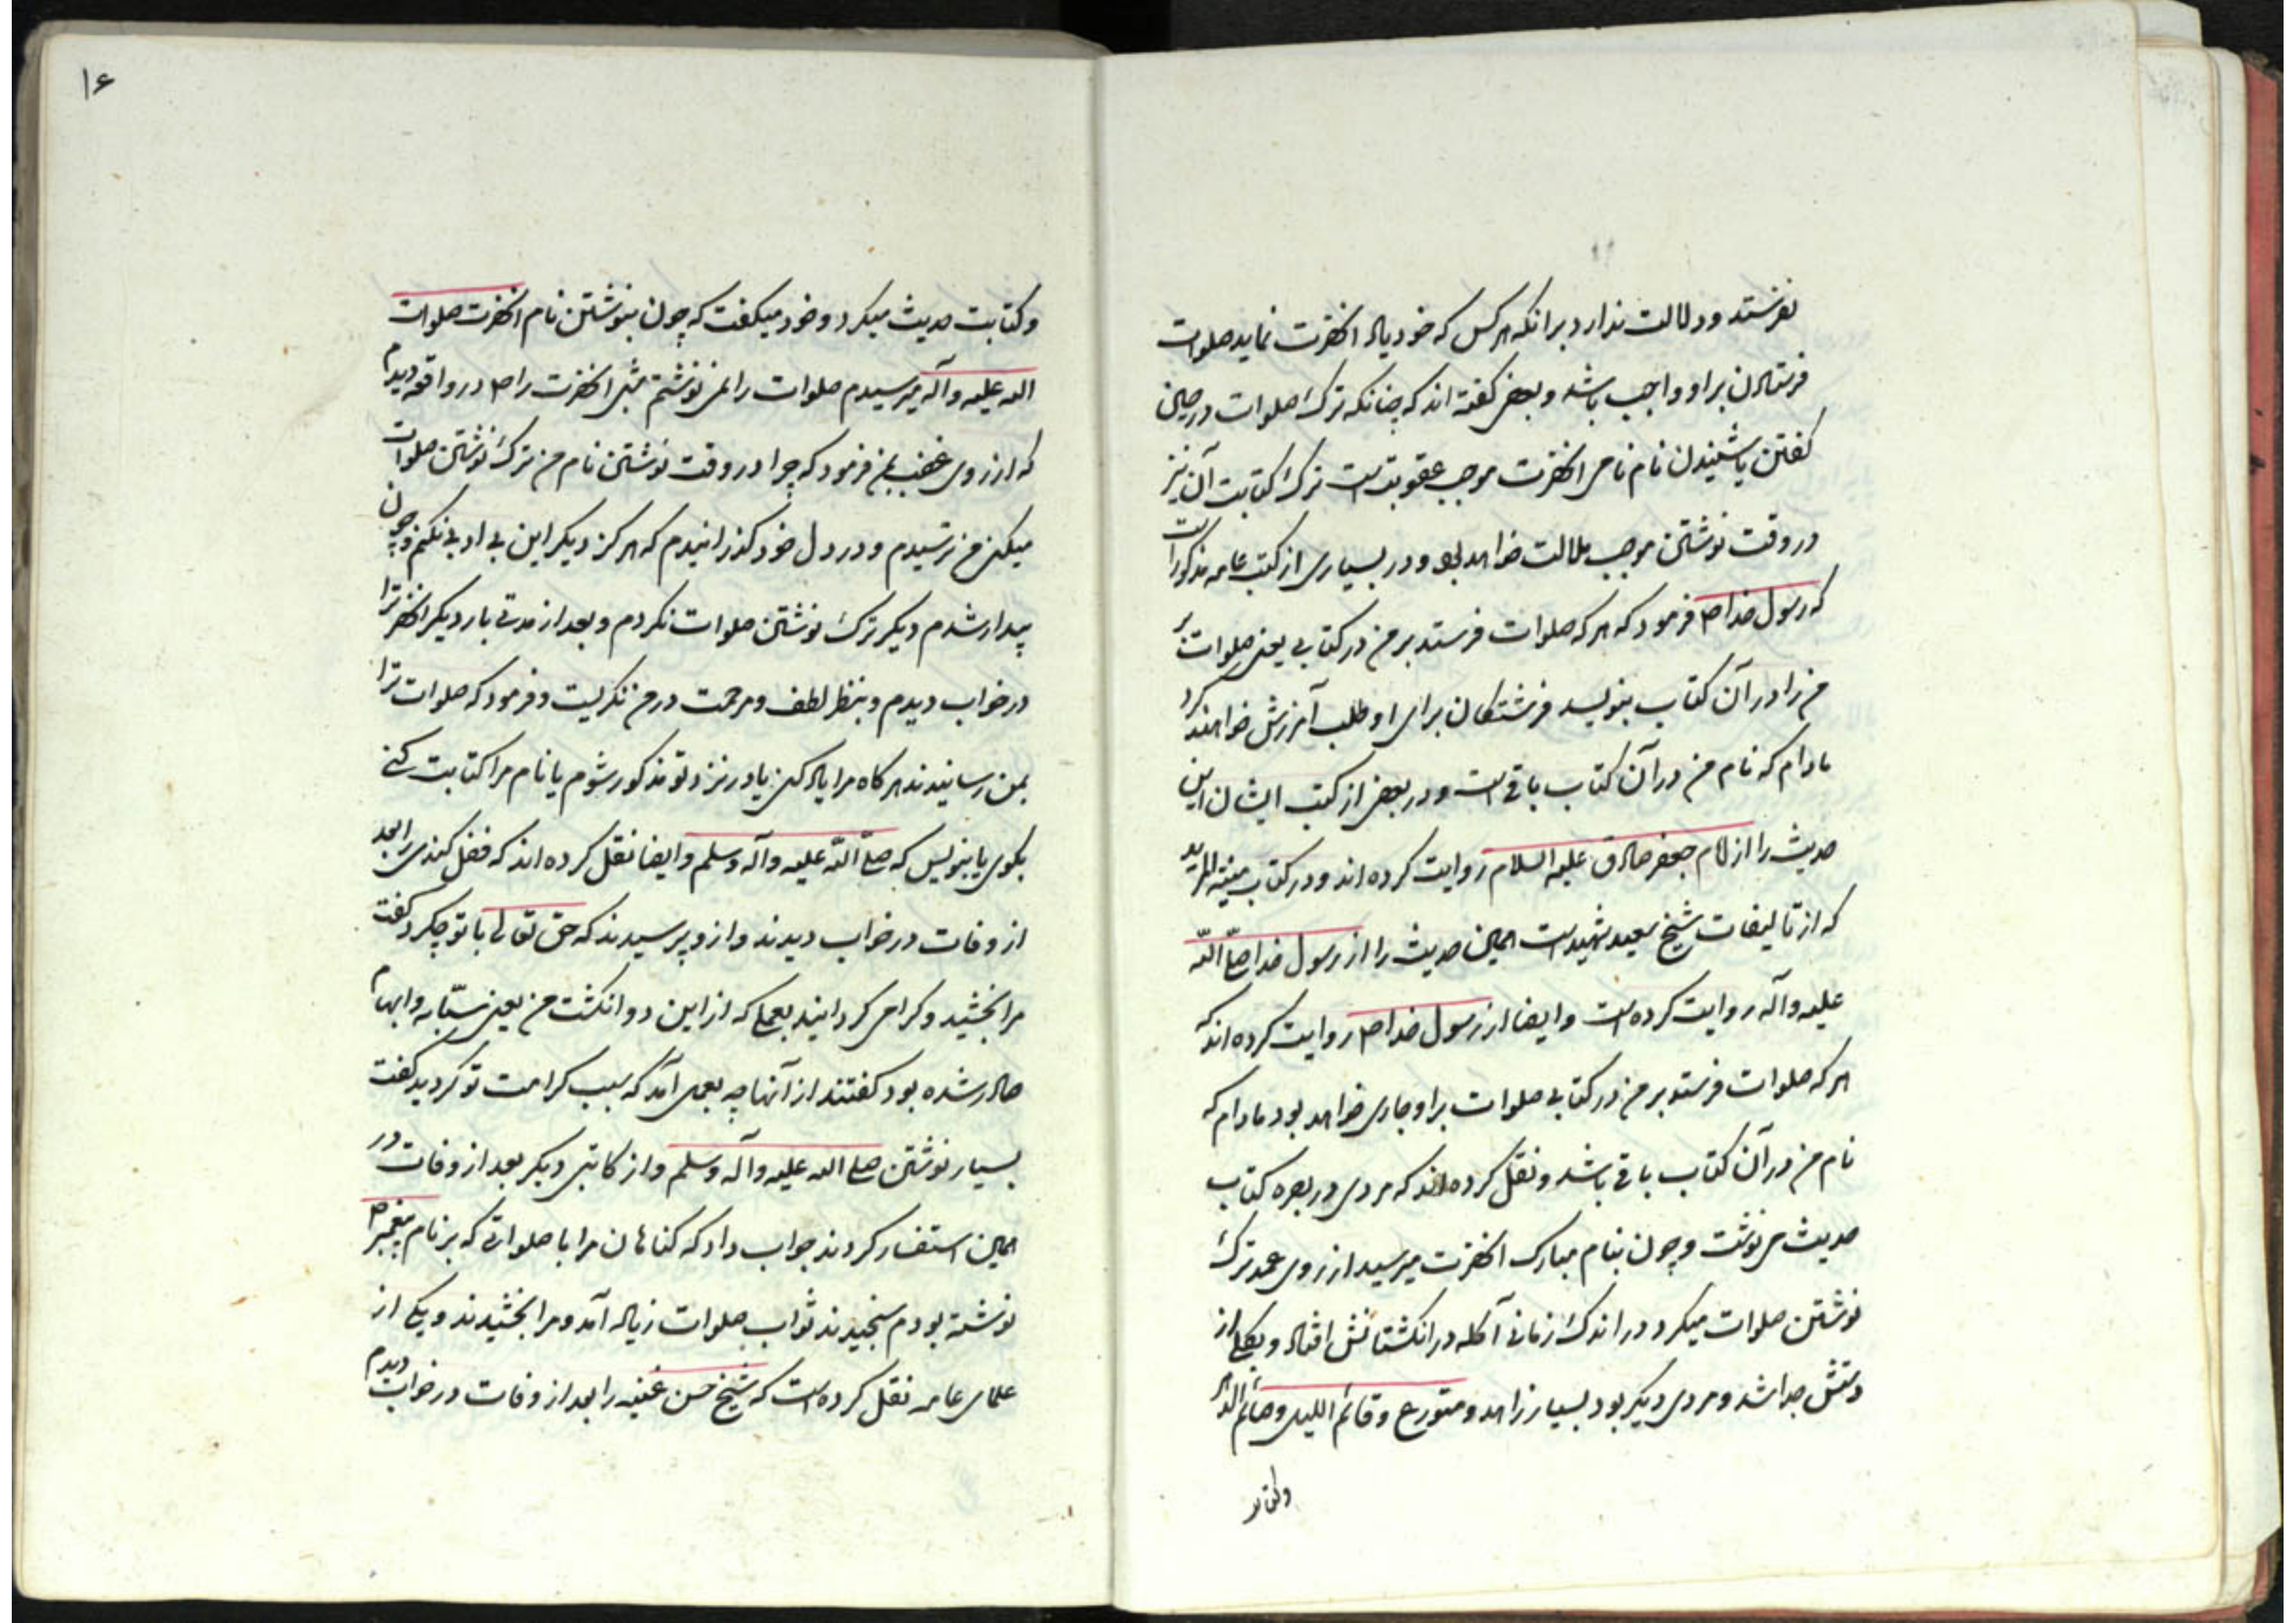 نفرستد ودلالت ندارد برانکه هرکس که خود یاد انحضرت نماید صلوات
فرستادن براو واجب باشد وبعضی گفته اند که چنانکه ترک صلوات درحین
گفتن یا شنیدن نام نامی انحضرت موجب عقوبتست ترک کتابت آن نیز
در وقت نوشتن موجب ملالت خواهد بود ودر بسیاری از کتب عامه مذکوراست
که رسول خدا ص فرمود که هرکه صلوات فرستد برمن درکتابی یعنی صلوات بر
من را درآن کتاب بنویسد فرشتگان برای او طلب آمرزش خواهند کرد
مادام که نام من درآن کتاب باقی است ودر بعضی از کتب ایشان این
حدیث را از امام جعفر صادق علیه السلام روایت کرده اند ودر کتاب منیة المرید
که از تالیفات شیخ سعید شهیداست همین حدیث را از رسول خدا صلّی اللّه
علیه وآله روایت کرده است وایضا از رسول خدا ص روایت کرده اند که
هرکه صلوات فرستد برمن درکتابی صلوات براو جاری خواهد بود مادام که
نام من درآن کتاب باقی باشد ونقل کرده اند که مردی در بصره کتاب
حدیث می نوشت وچون بنام مبارک انحضرت میرسید از روی عمد ترک
نوشتن صلوات میکرد در اندک زمانی آکله در انگشتانش افتاد و از
دستش جدا شد ومردی دیگر بود بسیار زاهد ومتورع وقائم اللیل وصائم الدهر
وکتابت حدیث میکرد وخود میگفت که چون بنوشتن نام انحضرت صلوات
الله علیه وآله میرسیدم صلوات را نمی نوشتم شبی انحضرت را ص در واقعه دیدم
که از روی غضب بمن فرمود که چرا در وقت نوشتن نام من ترک نوشتن صلوات
میکنی من ترسیدم ودر دل خود گذرانیدم که هرگز دیگر این بی ادبی نکنم وچون
بیدار شدم دیگر ترک نوشتن صلوات نکردم وبعد از مدتی بار دیگر انحضرترا
درخواب دیدم وبنظر لطف ومرحمت درمن نگریست وفرمود که صلوات ترا
بمن رسانیدند هرگاه مرا یاد کنی یا در نزد تو مذکور شوم یا نام مرا کتابت کنی
بگوی یا بنویس که صلّی اللّه علیه وآله وسلم وایضا نقل کرده اند که فضل کندی را بعد
از وفات درخواب دیدند وازو پرسیدند که حق تعالی با تو چکرد گفت
مرا بخشید وگرامی گردانید بعملی که از این دو انگشت من یعنی سبّابه وابهام
صادر شده بود گفتند از آنها چه بعمل آمد که سبب کرامت تو گردید گفت
بسیار نوشتن صلی الله علیه وآله وسلم واز کاتبی دیگر بعد از وفات در
همین استفسار کردند جواب داد که گناهان مرا با صلواتی که بر نام پیغمبر ص
نوشته بودم سنجیدند ثواب صلوات زیاد آمد ومرا بخشیدند ویکی از
علمای عامه نقل کرده است که شیخ حسن را بعد از وفات درخواب دیدم
۱۶